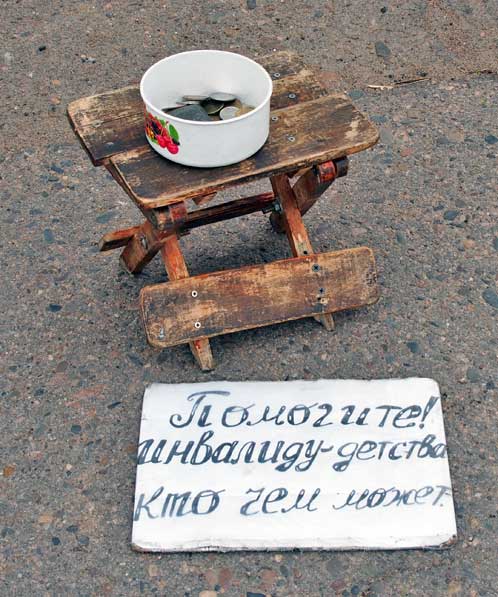 Помогите!
инвалиду-детства
кто чем может.